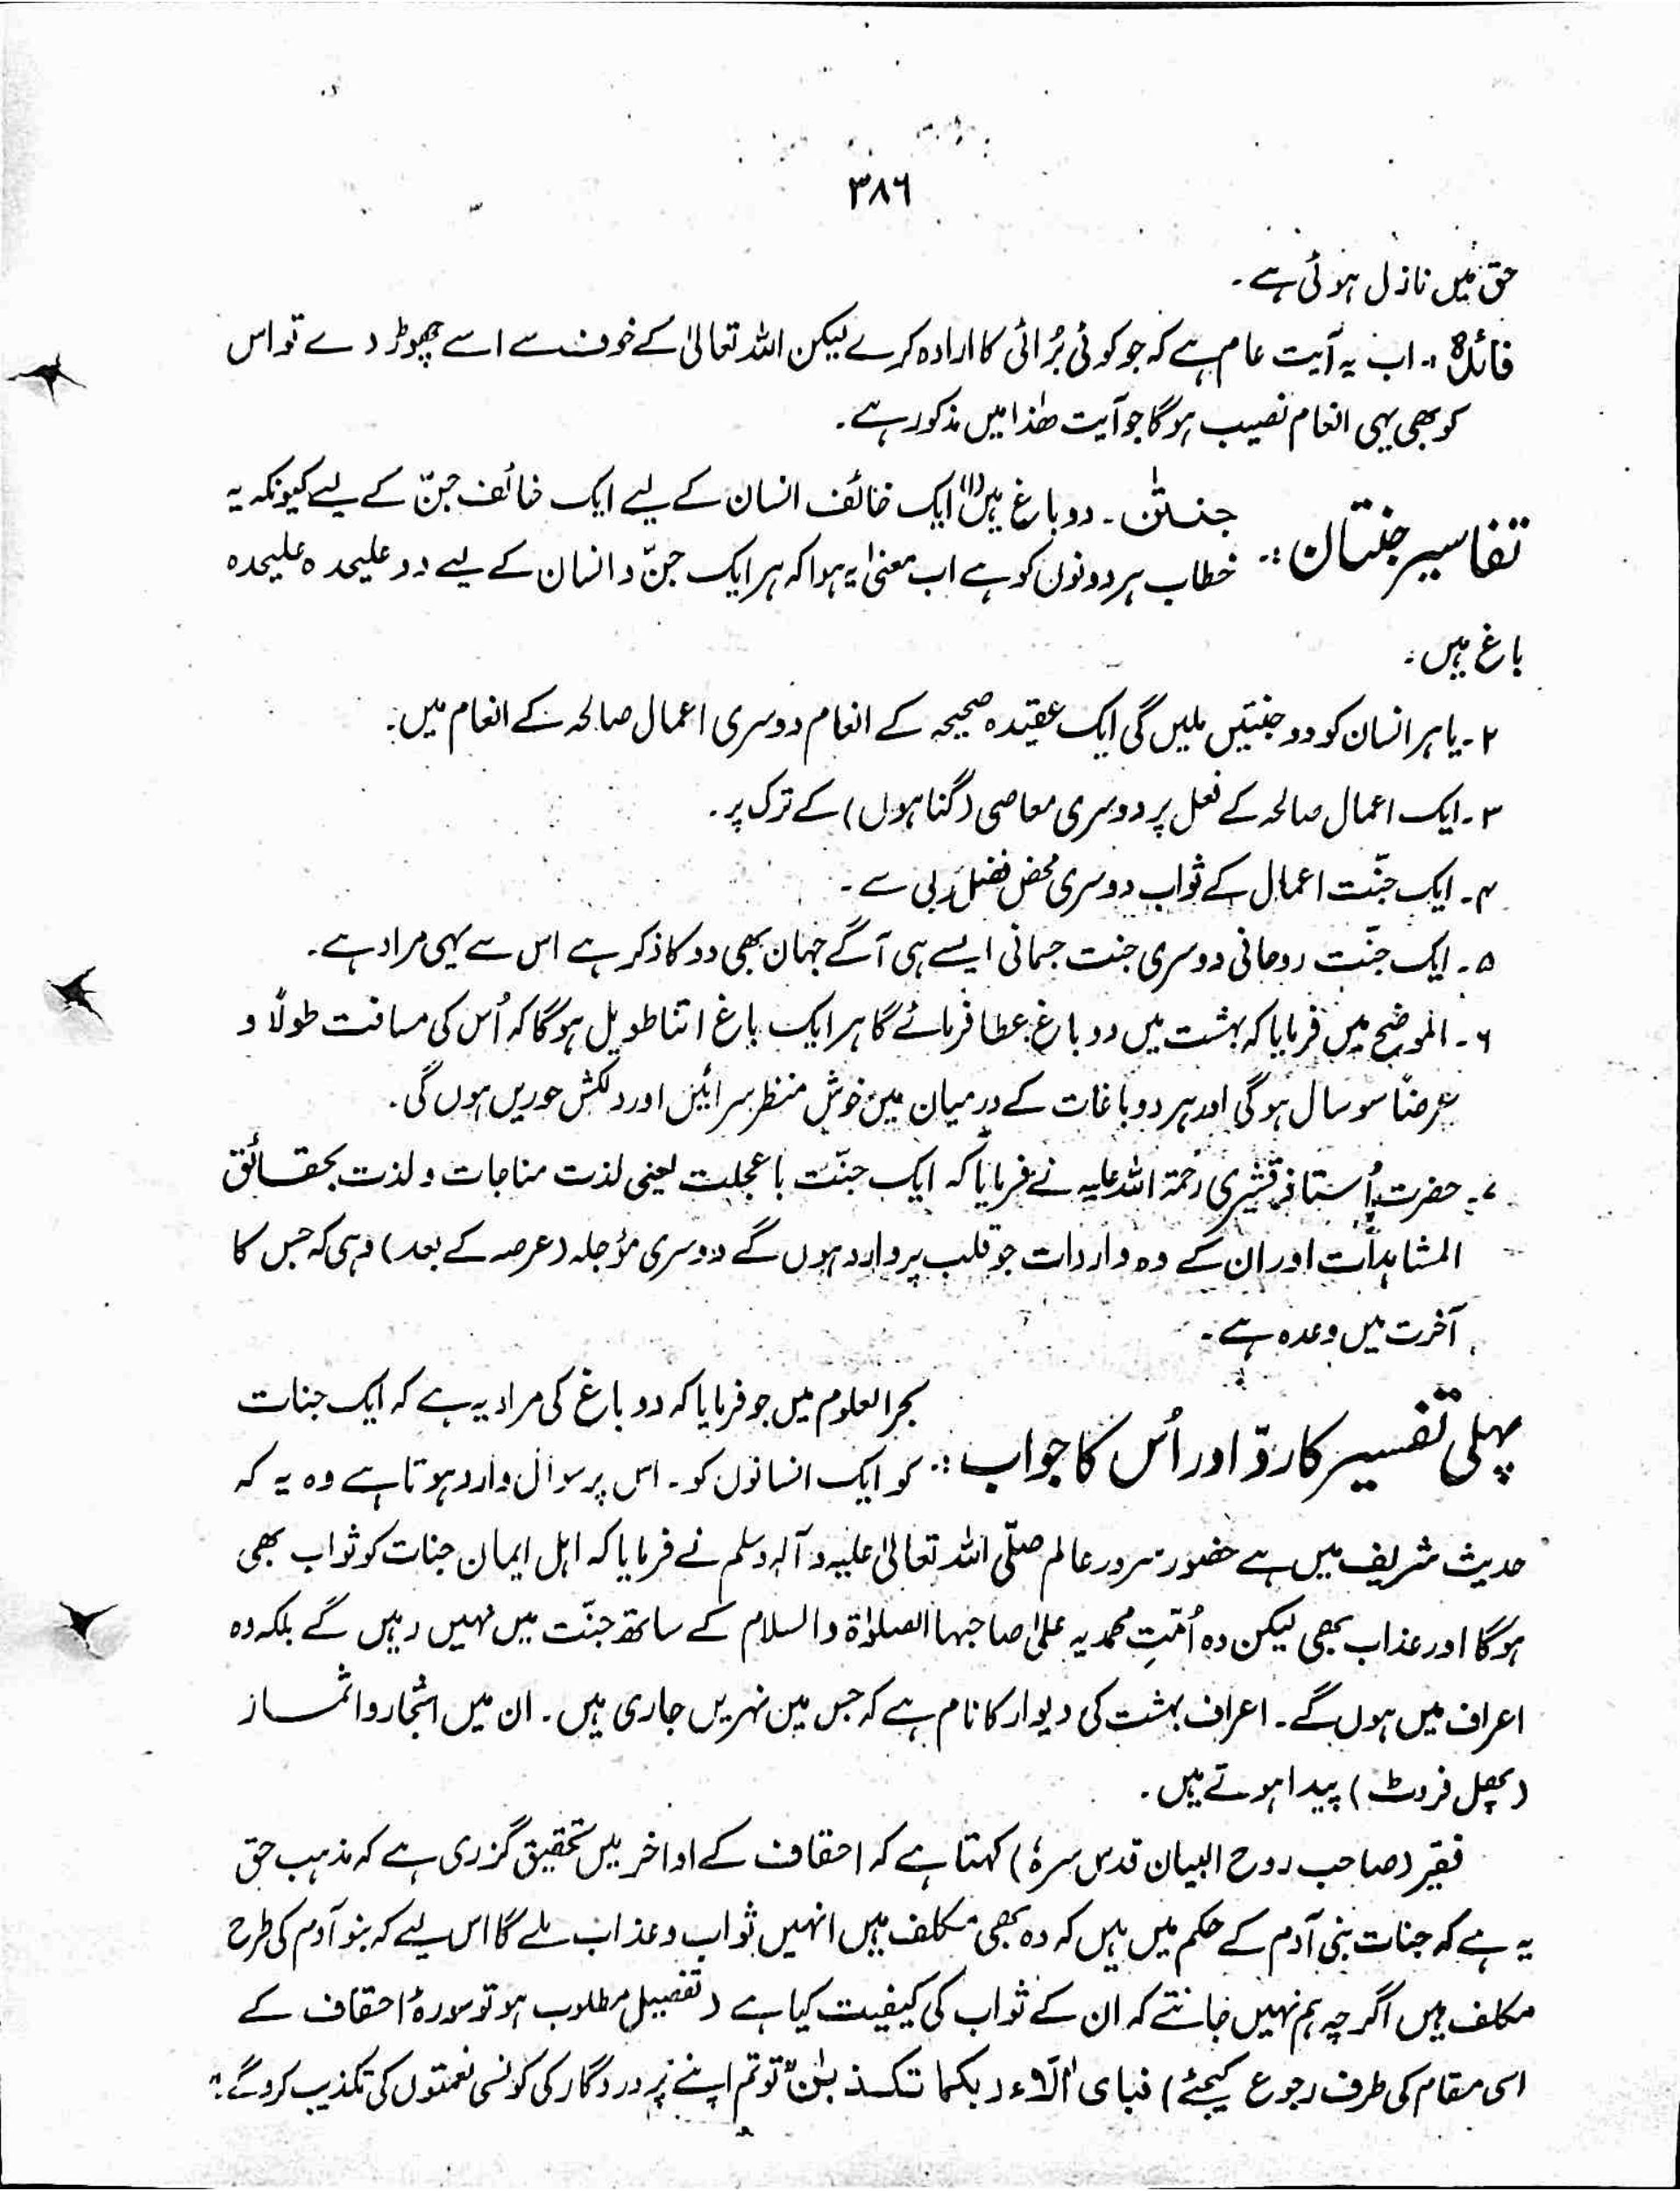 ۳۸۶
حق میں نازل ہوئی ہے۔
فائدہ :۔ اب یہ آیت عام ہے کہ جو کوئی بُرائی کا ارادہ کرے لیکن اللہ تعالیٰ کے خوف سے اسے چھوڑ دے تو اس
کو بھی یہی انعام نصیب ہو گا جو آیت ھٰذا میں مذکور ہے۔
تفاسیر جنتان :۔ جنتٰن۔ دو باغ ہیں (۱) ایک خائف انسان کے لیے ایک خائف جنّ کے لیے کیونکہ یہ
خطاب ہر دونوں کو ہے اب معنیٰ یہ ہوا کہ ہر ایک جنّ و انسان کے لیے دو علیحدہ علیحدہ
باغ ہیں۔
۲۔ یا ہر انسان کو دو جنتیں ملیں گی ایک عقیدہ صحیحہ کے انعام دوسری اعمال صالحہ کے انعام میں۔
۳۔ ایک اعمال صالحہ کے فعل پر دوسری معاصی (گناہوں) کے ترک پر۔
۴۔ ایک جنّت اعمال کے ثواب دوسری محض فضل ربی سے۔
۵۔ ایک جنّت روحانی دوسری جنت جسمانی ایسے ہی آگے جہان بھی دو کا ذکر ہے اس سے یہی مراد ہے۔
۶۔ الموضح میں فرمایا کہ بہشت میں دو باغ عطا فرمائے گا ہر ایک باغ اتنا طویل ہو گا کہ اُس کی مسافت طولًا و
عرضًا سو سال ہو گی اور ہر دو باغات کے درمیان میں خوش منظر سرائیں اور دلکش حوریں ہوں گی۔
۷۔ حضرت اُستاذ قشیری رحمۃ اللہ علیہ نے فرمایا کہ ایک جنّت با عجلت یعنی لذت مناجات و لذت بحقائق
المشاہدات اور ان کے وہ واردات جو قلب پر وارد ہوں گے دوسری مؤجلہ (عرصہ کے بعد) وہی کہ جس کا
آخرت میں وعدہ ہے۔
پہلی تفسیر کا ردّ اور اُس کا جواب :۔ بحر العلوم میں جو فرمایا کہ دو باغ کی مراد یہ ہے کہ ایک جنات
کو ایک انسانوں کو۔ اس پر سوال وارد ہوتا ہے وہ یہ کہ
حدیث شریف میں ہے حضور سرور عالم صلّی اللہ تعالیٰ علیہ وآلہ وسلم نے فرمایا کہ اہل ایمان جنات کو ثواب بھی
ہوگا اور عذاب بھی لیکن وہ اُمّتِ محمدیہ علیٰ صاحبہا الصلوٰۃ والسلام کے ساتھ جنّت میں نہیں رہیں گے بلکہ وہ
اعراف میں ہوں گے۔ اعراف بہشت کی دیوار کا نام ہے کہ جس میں نہریں جاری ہیں۔ ان میں اشجار و اثمار
(پھل فروٹ) پیدا ہوتے ہیں۔
فقیر (صاحب روح البیان قدس سرہٗ) کہتا ہے کہ احقاف کے اواخر میں تحقیق گزری ہے کہ مذہب حق
یہ ہے کہ جنات بنی آدم کے حکم میں ہیں کہ وہ بھی مکلف ہیں انہیں ثواب و عذاب ملے گا اس لیے کہ بنو آدم کی طرح
مکلف ہیں اگرچہ ہم نہیں جانتے کہ ان کے ثواب کی کیفیت کیا ہے (تفصیل مطلوب ہو تو سورہٗ احقاف کے
اسی مقام کی طرف رجوع کیجئے) فبای اٰلآء ربکما تکذبٰن تو تم اپنے پروردگار کی کونسی نعمتوں کی تکذیب کرو گے؟